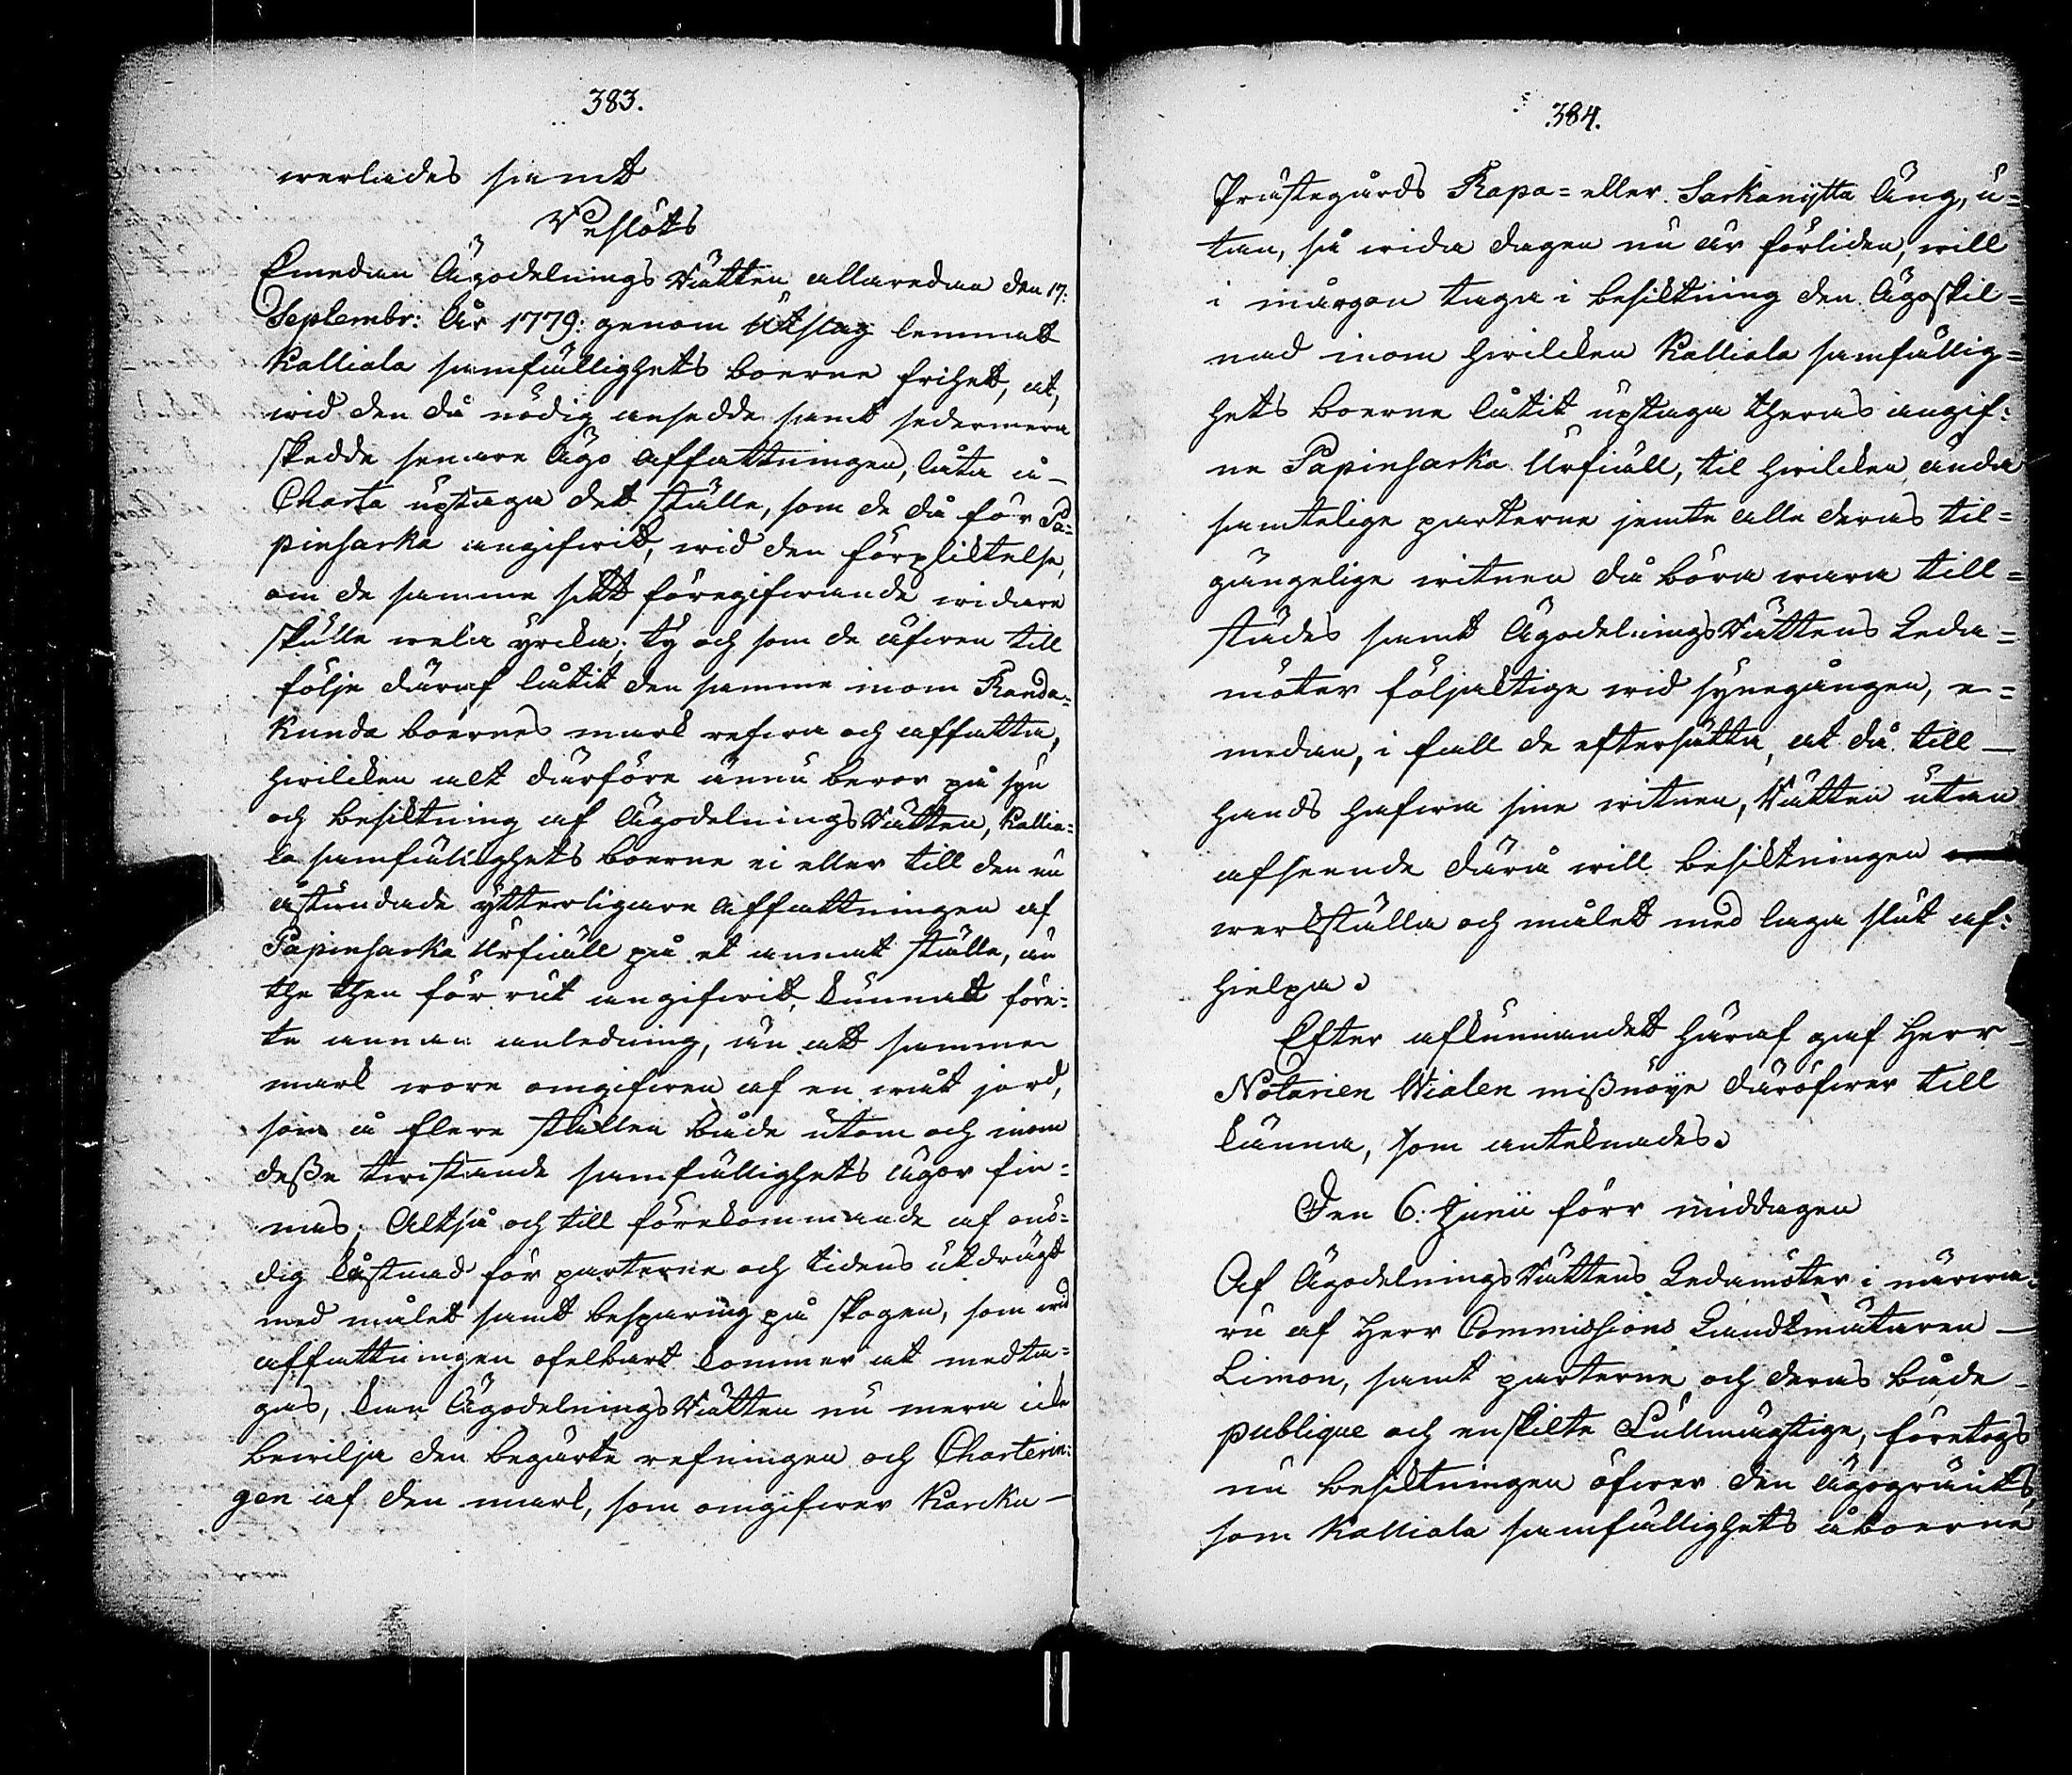 383.
werlades samt
Beslöts
Emedan Ägodelnings Rätten allaredan den 17:
Septembr: År 1779: genom Utslag lemnatt
Kalliala samfällighets boerne frihett, at,
wid den då nödig ansedde samt sedermera
skedde senare Ägo affattningen, låta å
Charta uptaga det ställe, som de då för Pa=
pinsarka angifwitt, wid den förpliktelse,
om de samme sitt föregifwande widare
skulle wela yrcka; ty och som de äfwen till
följe däraf låtit den samme inom Randa=
kunda boernes mark refwa och affatta,
hwilcken alt därföre ännu beror på syn
och besiktning af Ägodelnings Rätten, Kallia=
la samfälighets boerne ei eller till den nu
åstundade ytterligare affattningen af
Papinsarka Urfiäll på et annat ställe, än
the then för rut angifwitt, kunnatt före=
te annan anledning, än att samme
mark wore omgifwen af en wåt jord,
som å flere ställen både utom och inom
desse twistande samfällighets ägor fin=
nas; Altså och till förekommande af onö=
dig kåstnad för parterne och tidens utdrägt
med målet samt besparing på skogen, som wid
affattningen ofelbart kommer at medta=
gas, kan Ägodelnings Rätten nu mera icke
bewilja den begärte refningen och Charterin:
gen af den mark, som omgifwer Karcku
384.
Prästegårds Rapa= eller Sarkanijtta Äng, u=
tan, så wida dagen nu är förliden, will
i mårgon taga i besiktning den Ägoskil=
nad inom hwilcken Kalliala samfällig=
hets boerne låtit uptaga theras angif:
ne Papinsarka Urfiäll, til hwilcken ända
samtelige parterne jemte alla deras til=
gängelige witnen då böra wara till=
städes samt Ägodelnings Rättens Leda=
möter följaktige wid synegången, e=
medan, i fall de eftersätta, at då till
hands hafwa sine witnen, Rätten utan
afseende därå will besiktningen
werkställa och målett med laga slut af:
hielpa.
Efter afkunnandett häraf gaf Herr
Notarien Wialen missnöye däröfwer till
känna, som antecknades.
Den 6: Junii förr middagen
Af Ägodelnings Rättens Ledamöter i närwa=
ru af Herr Commissions Landtmätaren
Limon, samt parterne och deras både
publique och enskilte Fullmägtige, företogs
nu besiktningen öfwer den ägogränts,
som Kalliala samfällighets åboerne